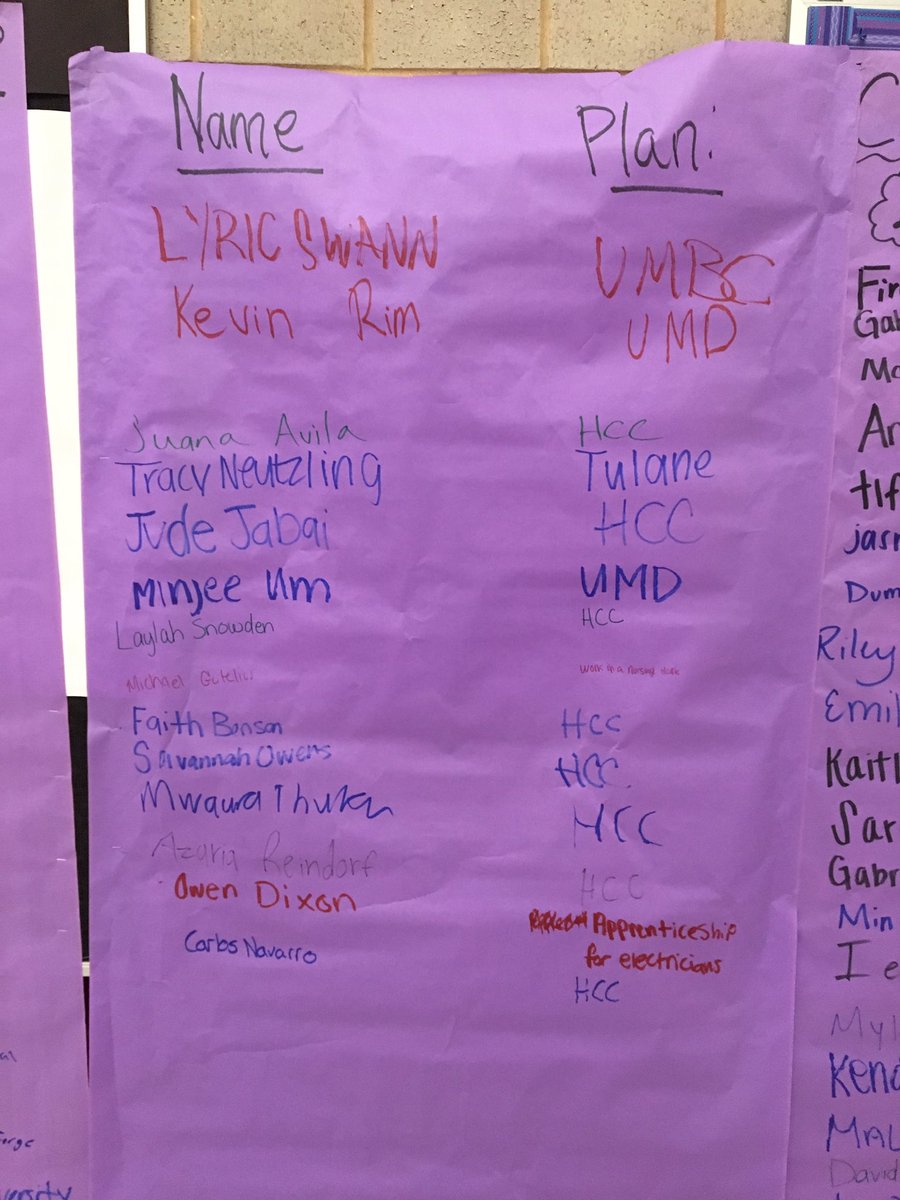 Name Plan:
LYRIC SWANN UMBC
Kevin Rim UMD
Juana Avila HCC
Tracy Neutzling Tulane
Jude Jabai HCC
Minjee Um UMD
Laylah Snowden HCC
Michael work in a nursing
Faith Bonson HCC
Savannah Owens HCC
Mwaura HCC
Azaria Reindorf HCC
Owen Dixon Apprenticeship
for electricians
Carlos Navarro HCC
Fir
Gab
Mo
An
tif
jasm
Dum
Riley
Emil
Kaitl
Sar
Gabr
Min
I e
Myl
Kend
MAL
David
versity